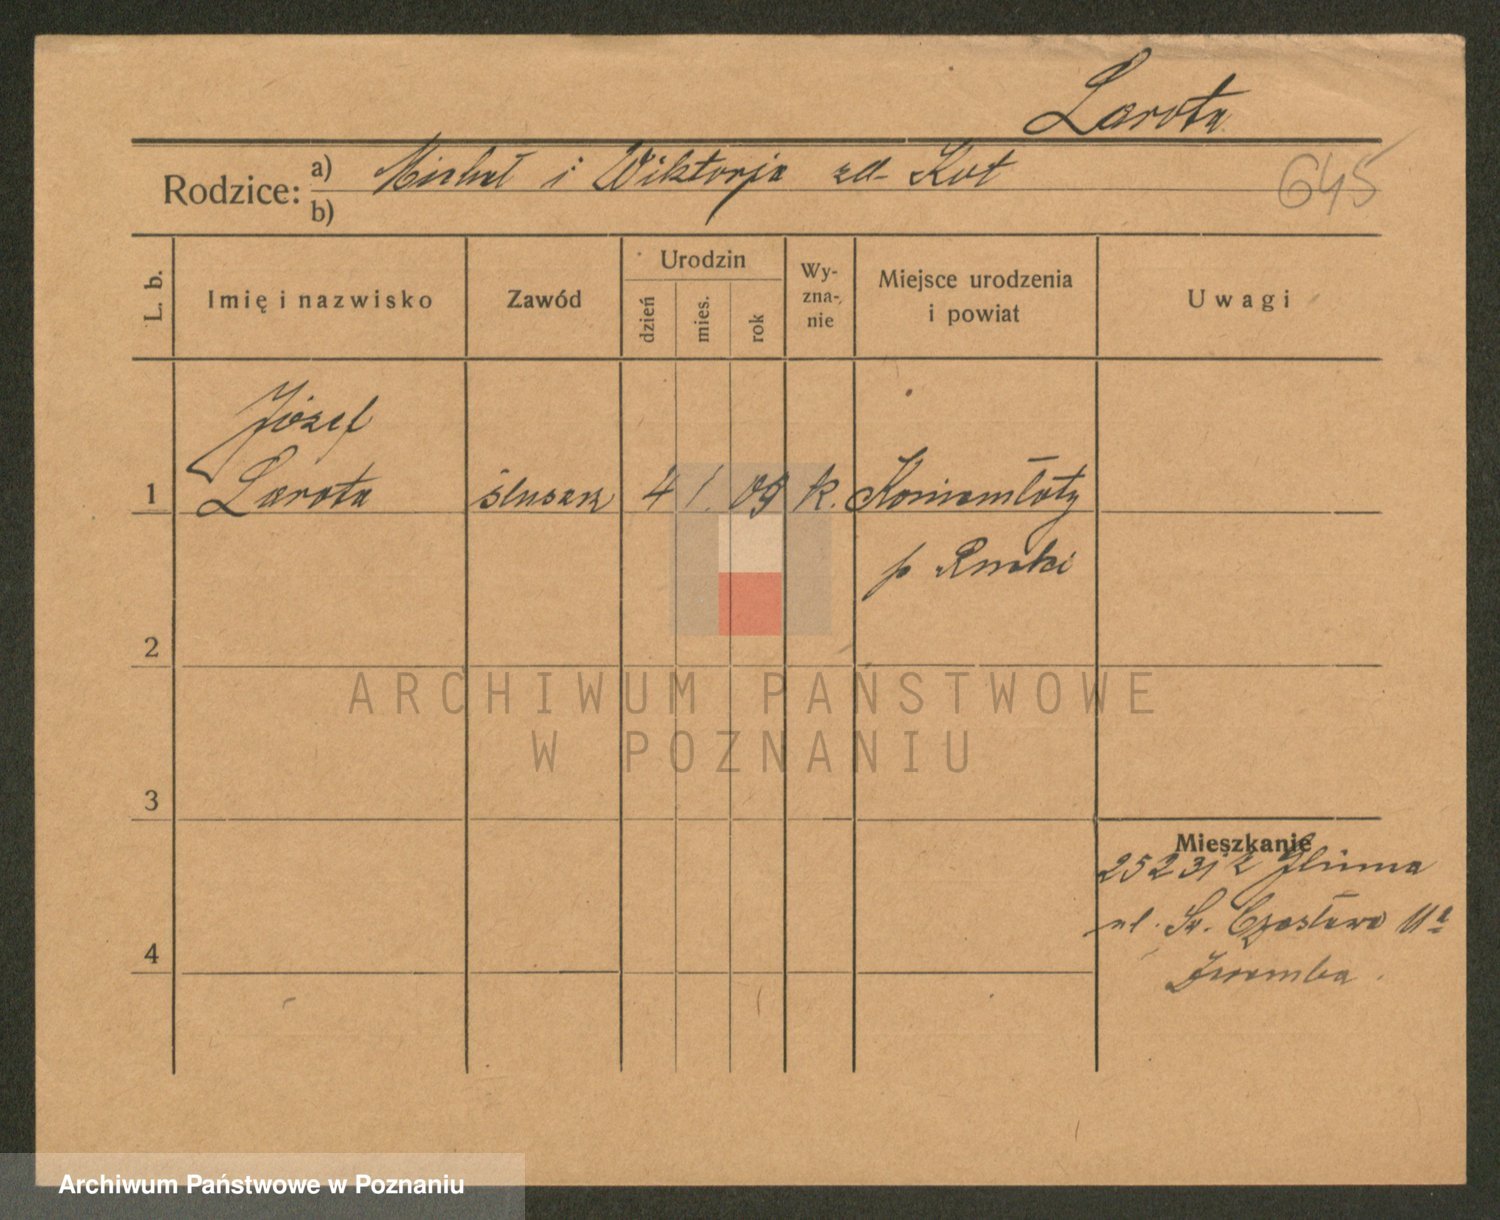 Larota
645
Rodzice: a) Michał i Wiktorja zd. Kot
b)
L. b.
Imię i nazwisko
Zawód
Urodzin
dzień
mies.
rok
Wy-
zna-
nie
Miejsce urodzenia
i powiat
Uwagi
Józef
1 Larota ślusarz 4 1. 09 k. Koniemłoty
p
2
3
4
Mieszkanie
25 2 31 z
ul. Św. Czesława 11a
ARCHIWUM PAŃSTWOWE
W POZNANIU
Archiwum Państwowe w Poznaniu